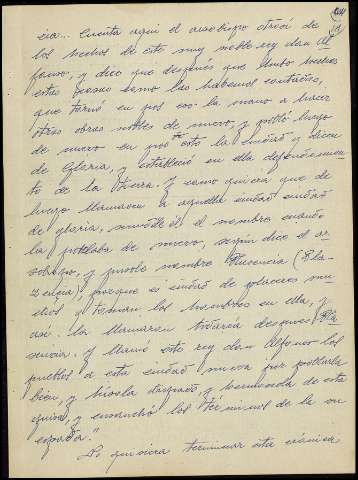 era... Cuenta aqui el arzobispo otrosi de
los hechos de este muy noble rey don Al
fonso, y dice que después que hubo hechos
estas cosas como las habemos contado,
que tornó en pos eso la mano a hacer
otras obras nobles de nuevo, y pobló luego
de nuevo en pos esto la ciudad y dicen
de Gloria, y estableció en ella defendimien
to de la tierra. y como quiera que de
luego llamaron a aquella ciudad ciudad
de gloria, mudóle él el nombre cuando
la poblaba de nuevo, según dice el ar
zobispo, y púsole nombre Placencia (Pla-
zencia), porque es ciudad de placeres mu
chos y toman los hombres en ella, y
asi la llamaron todavia despues Pla
sencia. y llamó este rey don Alfonso los
pueblos a esta ciudad nueva por poblarla
bién, y hizola y hermosada de esta
guisa, y ensanchó los términos de la su
espada."
Lo quisiera terminar esta crónica